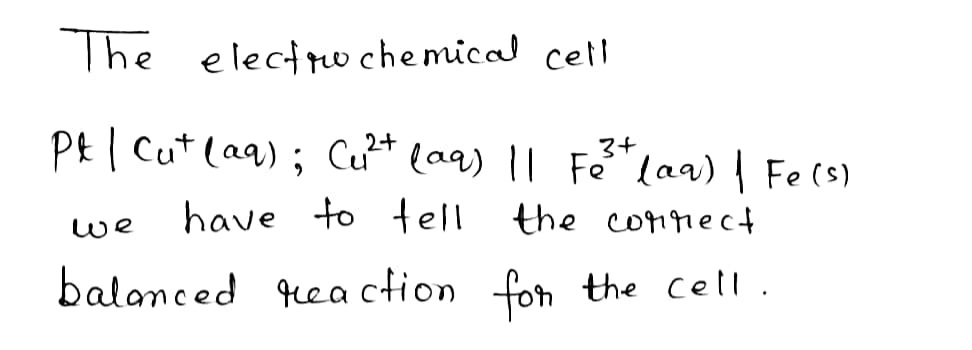 The electrochemical cell
Pt | Cu⁺(aq) ; Cu²⁺(aq) || Fe³⁺(aq) | Fe(s)
we have to tell the correct
balanced reaction for the cell.